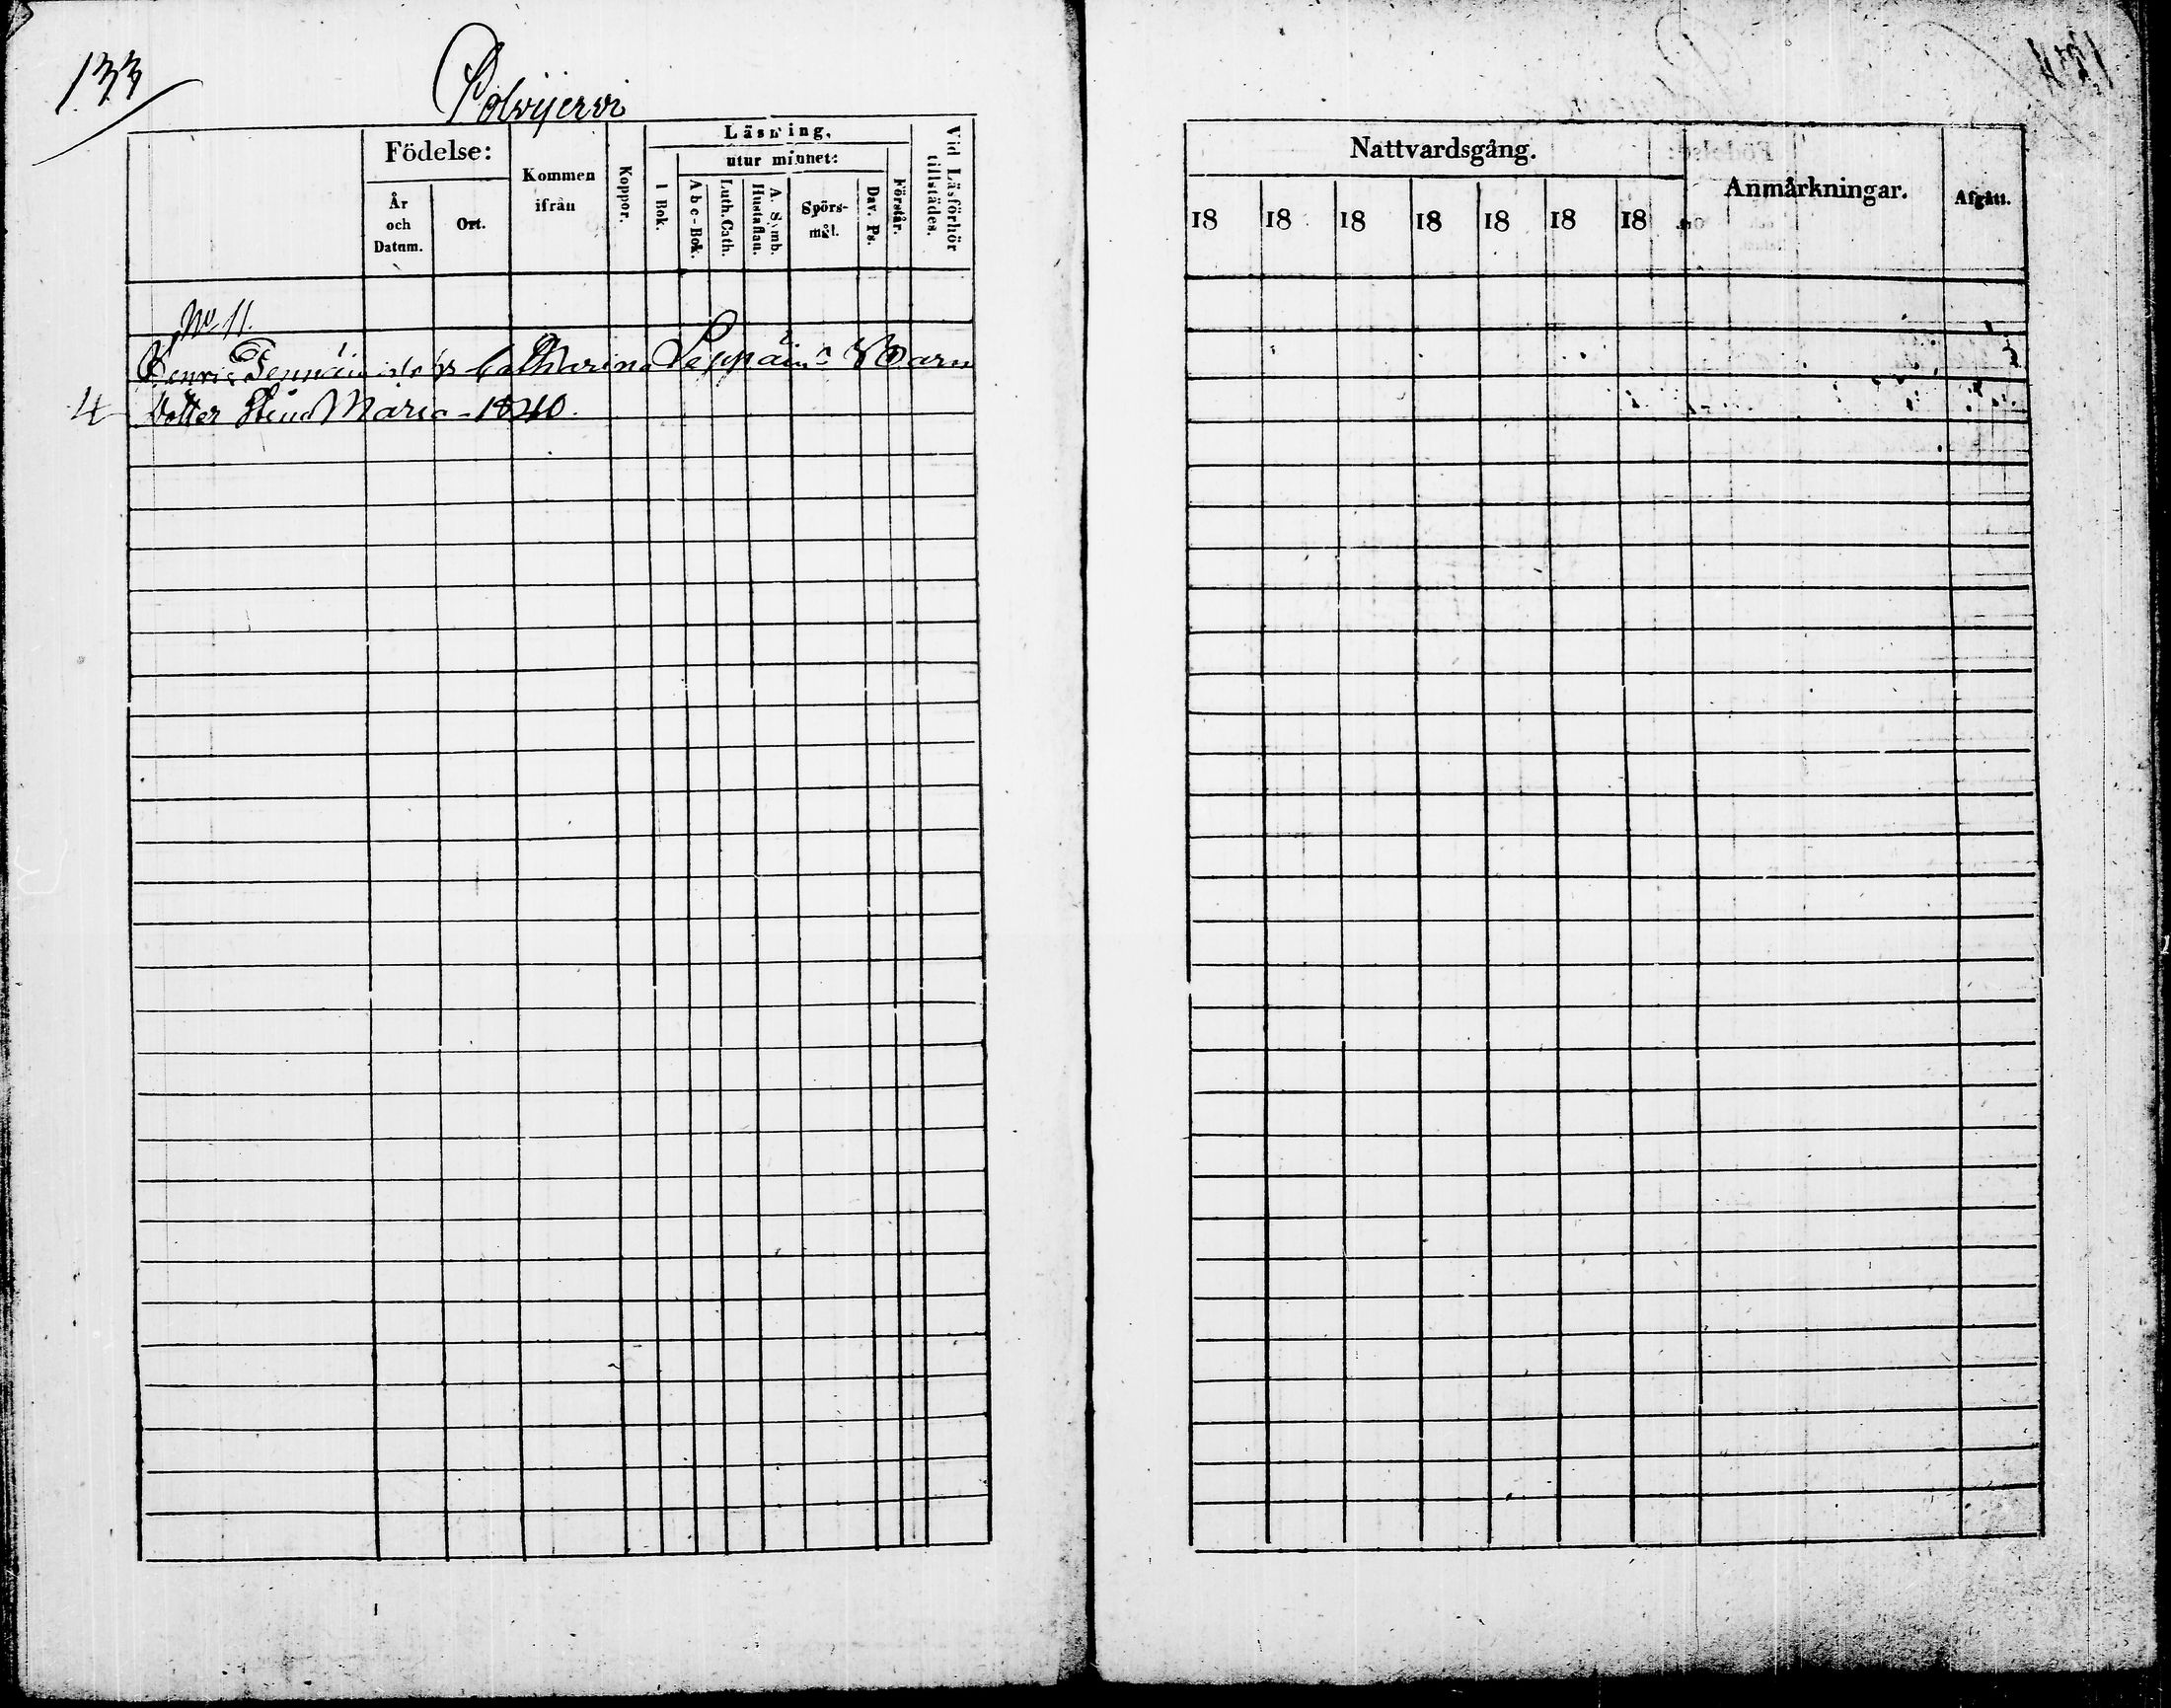 133
Polvijervi
Födelse:
År och Datum.
Ort.
Kommen ifrån
Koppor.
Läsning,
I Bok.
utur minnet:
Abc-Bok.
Luth. Cath.
A. Symb. Hustaflan.
Spörsmål.
Dav. Ps.
Förstår.
Vid Läsförhör tillstädes.
No 11.
Catharina Barn
4 Dotter Stina Maria - 1840.
Nattvardsgång.
18 18 18 18 18 18 18
Anmärkningar.
Afgått.